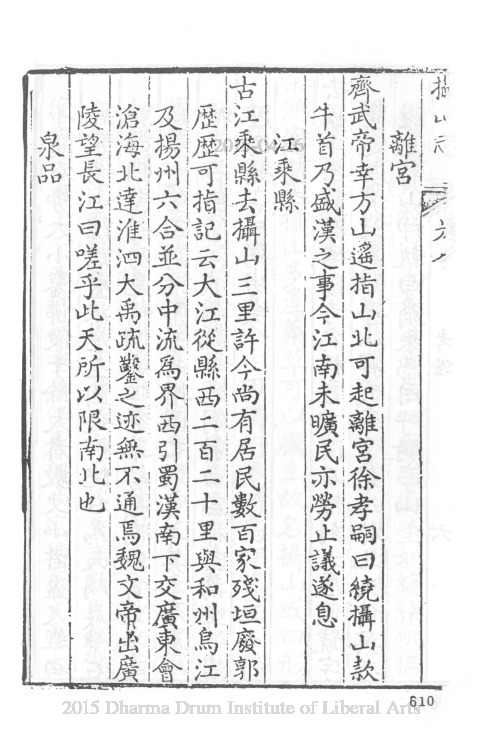 攝山志
離宮
齊武帝幸方山遙指山北可起離宮徐孝嗣曰繞攝山款
牛首乃盛漢之事今江南未曠民亦勞止議遂息
江乘縣
古江乘縣去攝山三里許今尚有居民數百家殘垣廢郭
歷歷可指記云大江從縣西二百二十里與和州烏江
及揚州六合並分中流爲界西引蜀漢南下交廣東會
滄海北達淮泗大禹疏鑿之迹無不通焉魏文帝出廣
陵望長江曰嗟乎此天所以限南北也
泉品
610
2015 Dharma Drum Institute of Liberal Arts